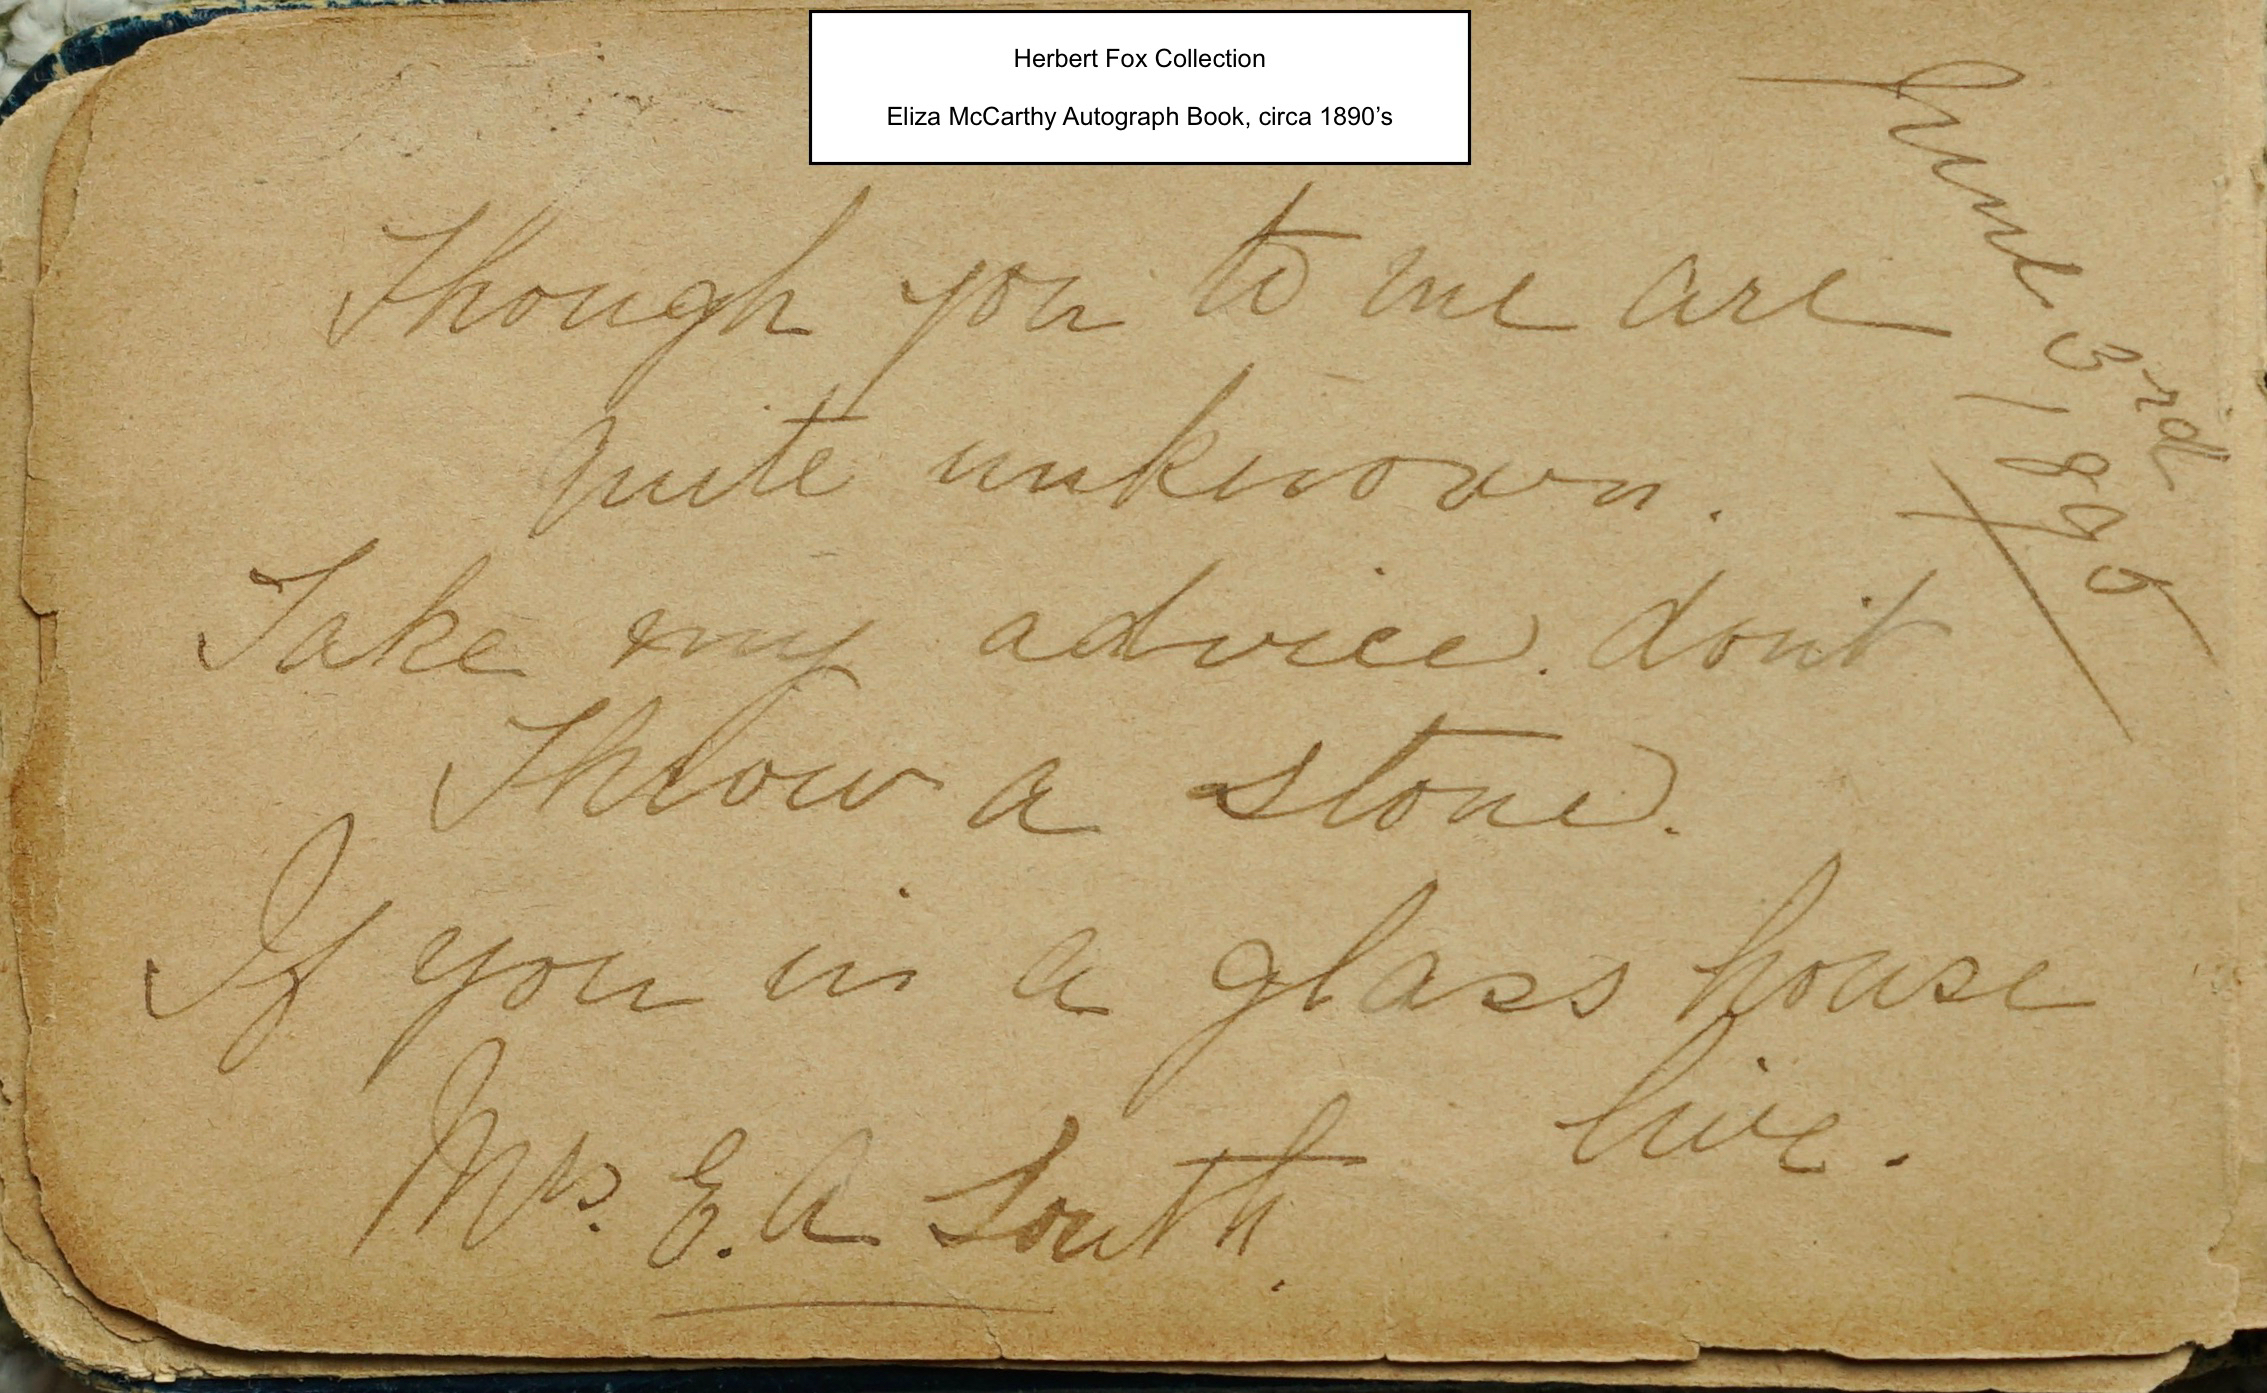 Herbert Fox Collection
Eliza McCarthy Autograph Book, circa 1890’s
June 3rd
1895
Though you to me are
quite unknown.
Take my advice. don't
Throw a stone.
If you in a glass house
live.
Mrs. E. A South.